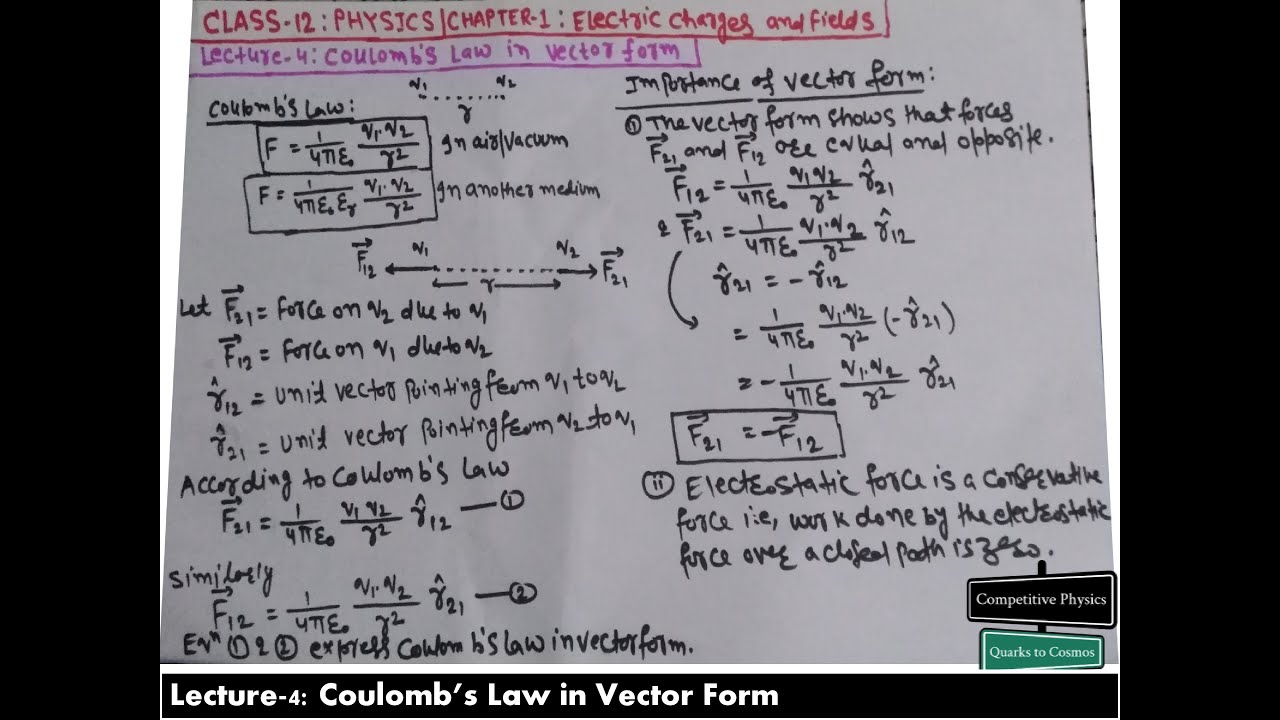 CLASS-12: PHYSICS|CHAPTER-1: Electric charges and Fields
Lecture-4: Coulomb's Law in vector form
q₁ q₂
r
Coulomb's Law:
F = 1/4πε₀ q₁.q₂/r² In air/vacuum
F = 1/4πε₀εᵣ q₁.q₂/r² In another medium
F⃗₁₂ q₁ q₂ F⃗₂₁
r
Let F⃗₂₁ = Force on q₂ due to q₁
F⃗₁₂ = Force on q₁ due to q₂
r̂₁₂ = unit vector pointing from q₁ to q₂
r̂₂₁ = unit vector pointing from q₂ to q₁
According to Coulomb's Law
F⃗₂₁ = 1/4πε₀ q₁q₂/r² r̂₁₂ — ①
Similarly
F⃗₁₂ = 1/4πε₀ q₁.q₂/r² r̂₂₁ — ②
Eqⁿ ① & ② express Coulomb's law in vector form.
Importance of vector form:
① The vector form shows that forces
F⃗₂₁ and F⃗₁₂ are equal and opposite.
F⃗₁₂ = 1/4πε₀ q₁q₂/r² r̂₂₁
& F⃗₂₁ = 1/4πε₀ q₁.q₂/r² r̂₁₂
r̂₂₁ = - r̂₁₂
= 1/4πε₀ q₁.q₂/r² (-r̂₂₁)
= - 1/4πε₀ q₁.q₂/r² r̂₂₁
F⃗₂₁ = -F⃗₁₂
ⓘⓘ Electrostatic force is a conservative
force i.e, work done by the electrostatic
force over a closed path is zero.
Competitive Physics
Quarks to Cosmos
Lecture-4: Coulomb's Law in Vector Form